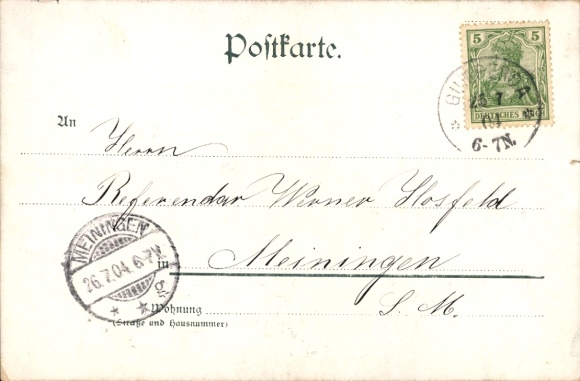 Postkarte.
5 5
DEUTSCHES REICH
04
6-7N.
An
Herrn
Referendar Werner Hosfeld
in Meiningen
S. M.
MEININGEN
26.7.04. 6-7V.
Wohnung
(Straße und Hausnummer)